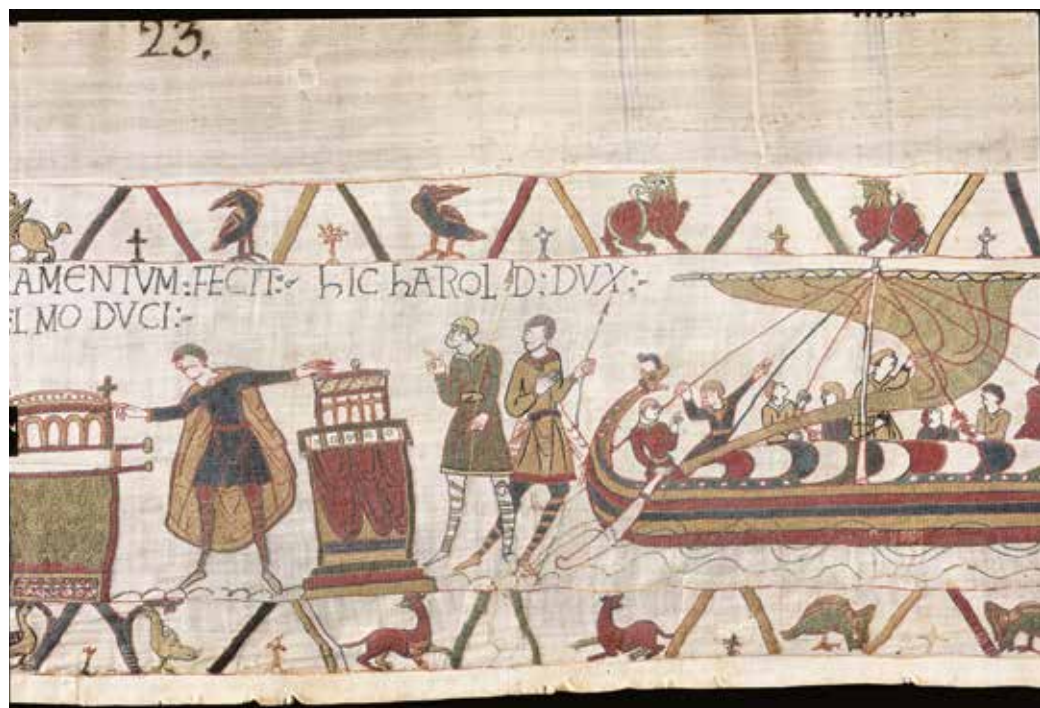 23.
AMENTVM:FECIT:- hIC hAROLD:DVX:-
:LMO DVCI:-